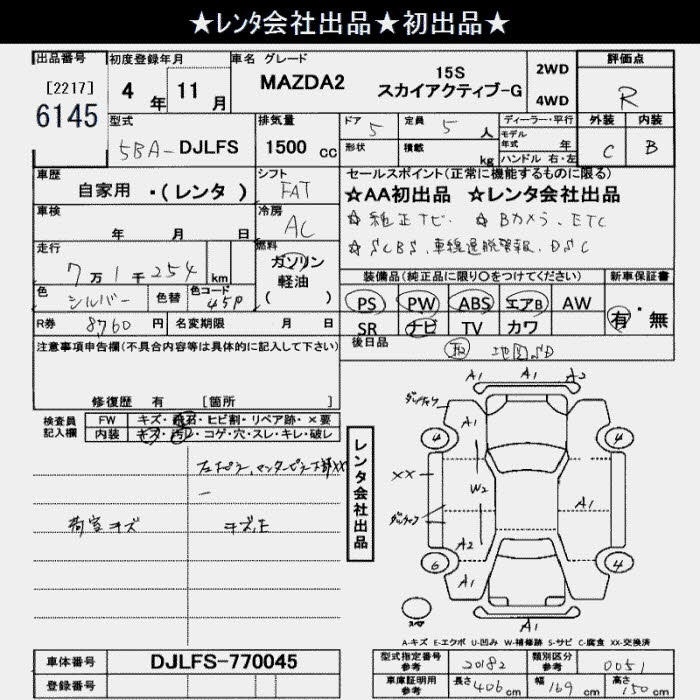 ★レンタ会社出品★初出品★
出品番号 初度登録年月 車名 グレード 評価点
[2217] 6145 4年 11月 MAZDA2 15S スカイアクティブ-G 2WD 4WD R
型式 排気量 ドア 定員 ディーラー・平行 外装 内装
5BA-DJLFS 1500cc 5 5人 モデル年式 年 C B
形状 積載 kg ハンドル 右・左
車歴 シフト セールスポイント(正常に機能するものに限る)
自家用 ・(レンタ) FAT ★AA初出品 ☆レンタ会社出品
車検 冷房 ☆ 純正ナビ. ☆ Bカメラ. ETC
年 月 日 AC ☆ SCBS. 車線逸脱警報. DSC
走行 燃料
7万1千254km ガソリン 軽油 ( )
装備品(純正品に限り○をつけてください) 新車保証書
色 色替 色コード
シルバー 45P
PS PW ABS エアB AW 有・無
SR ナビ TV カワ
R券 8760円 名変期限 月 日
後日品 取 地図SD
注意事項申告欄(不具合内容等は具体的に記入して下さい)
修復歴 有 [箇所 ]
検査員記入欄 FW キズ・飛石・ヒビ割・リペア跡・×要
内装 キズ・汚レ・コゲ・穴・スレ・キレ・破レ
荷室キズ
レンタ会社出品
A1 A1 A2
A1
4 4
XX W2 A1
A2
6 4
A1 A1
A1
スペア
A-キズ E-エクボ U-凹み W-補修跡 S-サビ C-腐食 XX-交換済
車体番号 DJLFS-770045
登録番号
型式指定番号参考 20182 類別区分参考 0051
車庫証明用参考 長さ 406cm 幅 169cm 高さ 150cm